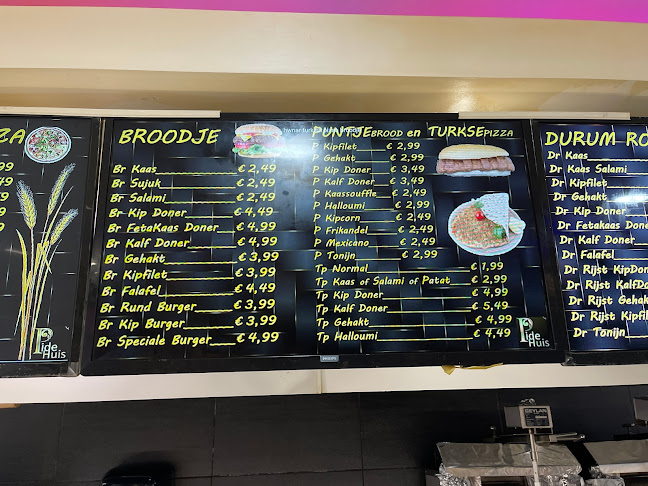 ZA
BROODJE
Br Kaas € 2,49
Br Sujuk € 2,49
Br Salami € 2,49
Br Kip Doner € 4,49
Br FetaKaas Doner € 4,99
Br Kalf Doner € 4,99
Br Gehakt € 3,99
Br Kipfilet € 3,99
Br Falafel € 4,49
Br Rund Burger € 3,99
Br Kip Burger € 3,99
Br Speciale Burger € 4,99
PUNTJEBROOD en TURKSEPIZZA
P Kipfilet € 2,99
P Gehakt € 2,99
P Kip Doner € 3,49
P Kalf Doner € 3,49
P Kaassouffle € 2,49
P Halloumi € 2,99
P Kipcorn € 2,49
P Frikandel € 2,49
P Mexicano € 2,49
P Tonijn € 2,99
Tp Normal € 1,99
Tp Kaas of Salami of Patat € 2,99
Tp Kip Doner € 4,99
Tp Kalf Doner € 5,49
Tp Gehakt € 4,99
Tp Halloumi € 4,49
Pide Huis
DURUM RO
Dr Kaas
Dr Kaas Salami
Dr Kipfilet
Dr Gehakt
Dr Kip Doner
Dr FetaKaas Doner
Dr Kalf Doner
Dr Falafel
Dr Rijst KipDon
Dr Rijst KalfDo
Dr Rijst Gehak
Dr Rijst Kipfil
Dr Tonijn
Pide Huis
PHILIPS
CEYLAN